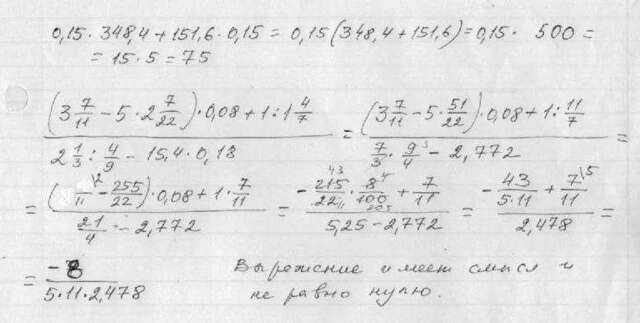 0,15 · 348,4 + 151,6 · 0,15 = 0,15 (348,4 + 151,6) = 0,15 · 500 =
= 15 · 5 = 75
(3 7/11 − 5 · 2 7/22) · 0,08 + 1 : 1 4/7 / 2 1/3 : 4/9 − 15,4 · 0,18 = (3 7/11 − 5 · 51/22) · 0,08 + 1 : 11/7 / 7/3 · 9/4 − 2,772 =
= ( /11 − 255/22) · 0,08 + 1 · 7/11 / 21/4 − 2,772 = − 215/22 · 8/100 + 7/11 / 5,25 − 2,772 = − 43/5·11 + 7/11 / 2,478 =
= −8 / 5 · 11 · 2,478
Выражение имеет смысл и
не равно нулю.